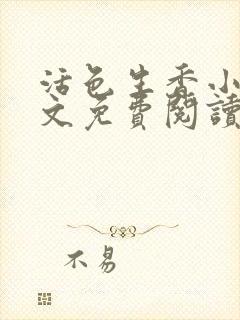 活色生香小
文免費閱讀
不易